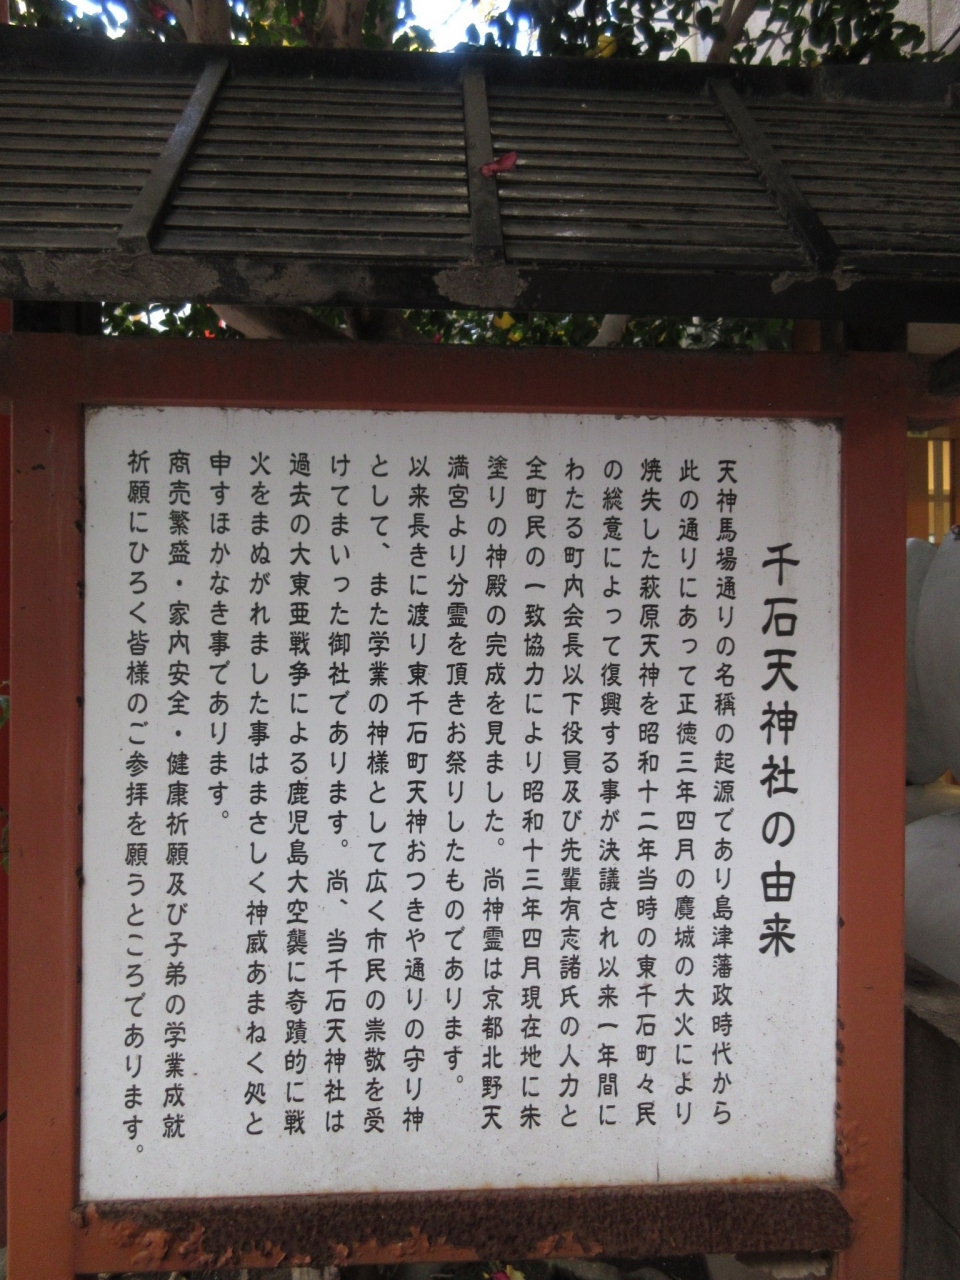 千石天神社の由来
天神馬場通りの名稱の起源であり島津藩政時代から
此の通りにあって正徳三年四月の麑城の大火により
焼失した萩原天神を昭和十二年当時の東千石町々民
の総意によって復興する事が決議され以来一年間に
わたる町内会長以下役員及び先輩有志諸氏の人力と
全町民の一致協力により昭和十三年四月現在地に朱
塗りの神殿の完成を見ました。尚神霊は京都北野天
満宮より分霊を頂きお祭りしたものであります。
以来長きに渡り東千石町天神おつきや通りの守り神
として、また学業の神様として広く市民の崇敬を受
けてまいった御社であります。尚、当千石天神社は
過去の大東亜戦争による鹿児島大空襲に奇蹟的に戦
火をまぬがれました事はまさしく神威あまねく処と
申すほかなき事であります。
商売繁盛・家内安全・健康祈願及び子弟の学業成就
祈願にひろく皆様のご参拝を願うところであります。